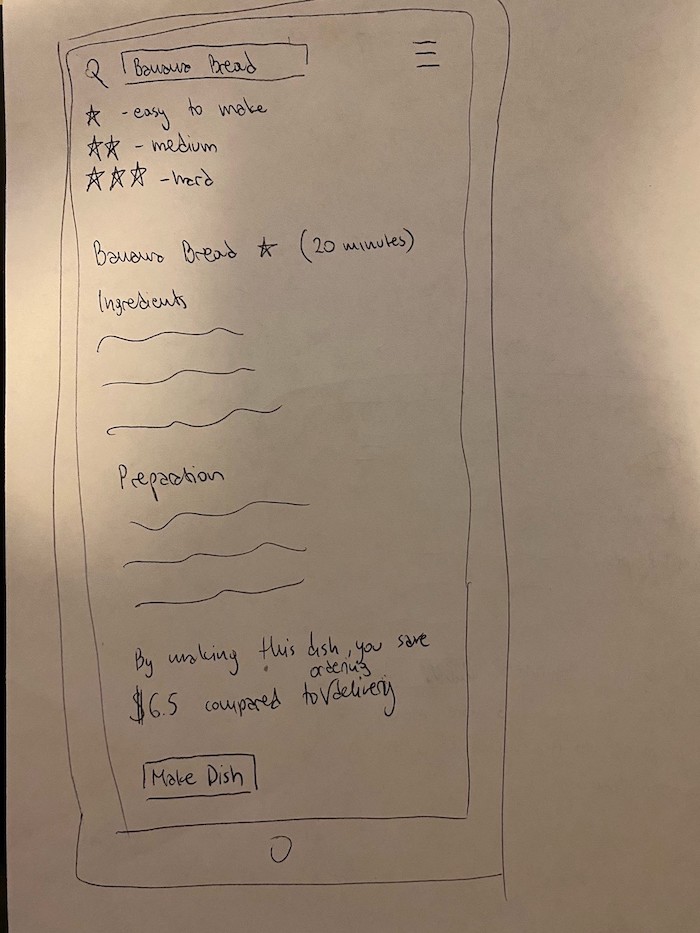 Banana Bread
- easy to make
- medium
- hard
Banana Bread (20 minutes)
Ingredients
Preparation
By making this dish, you save
ordering
$6.5 compared to delivery
Make Dish